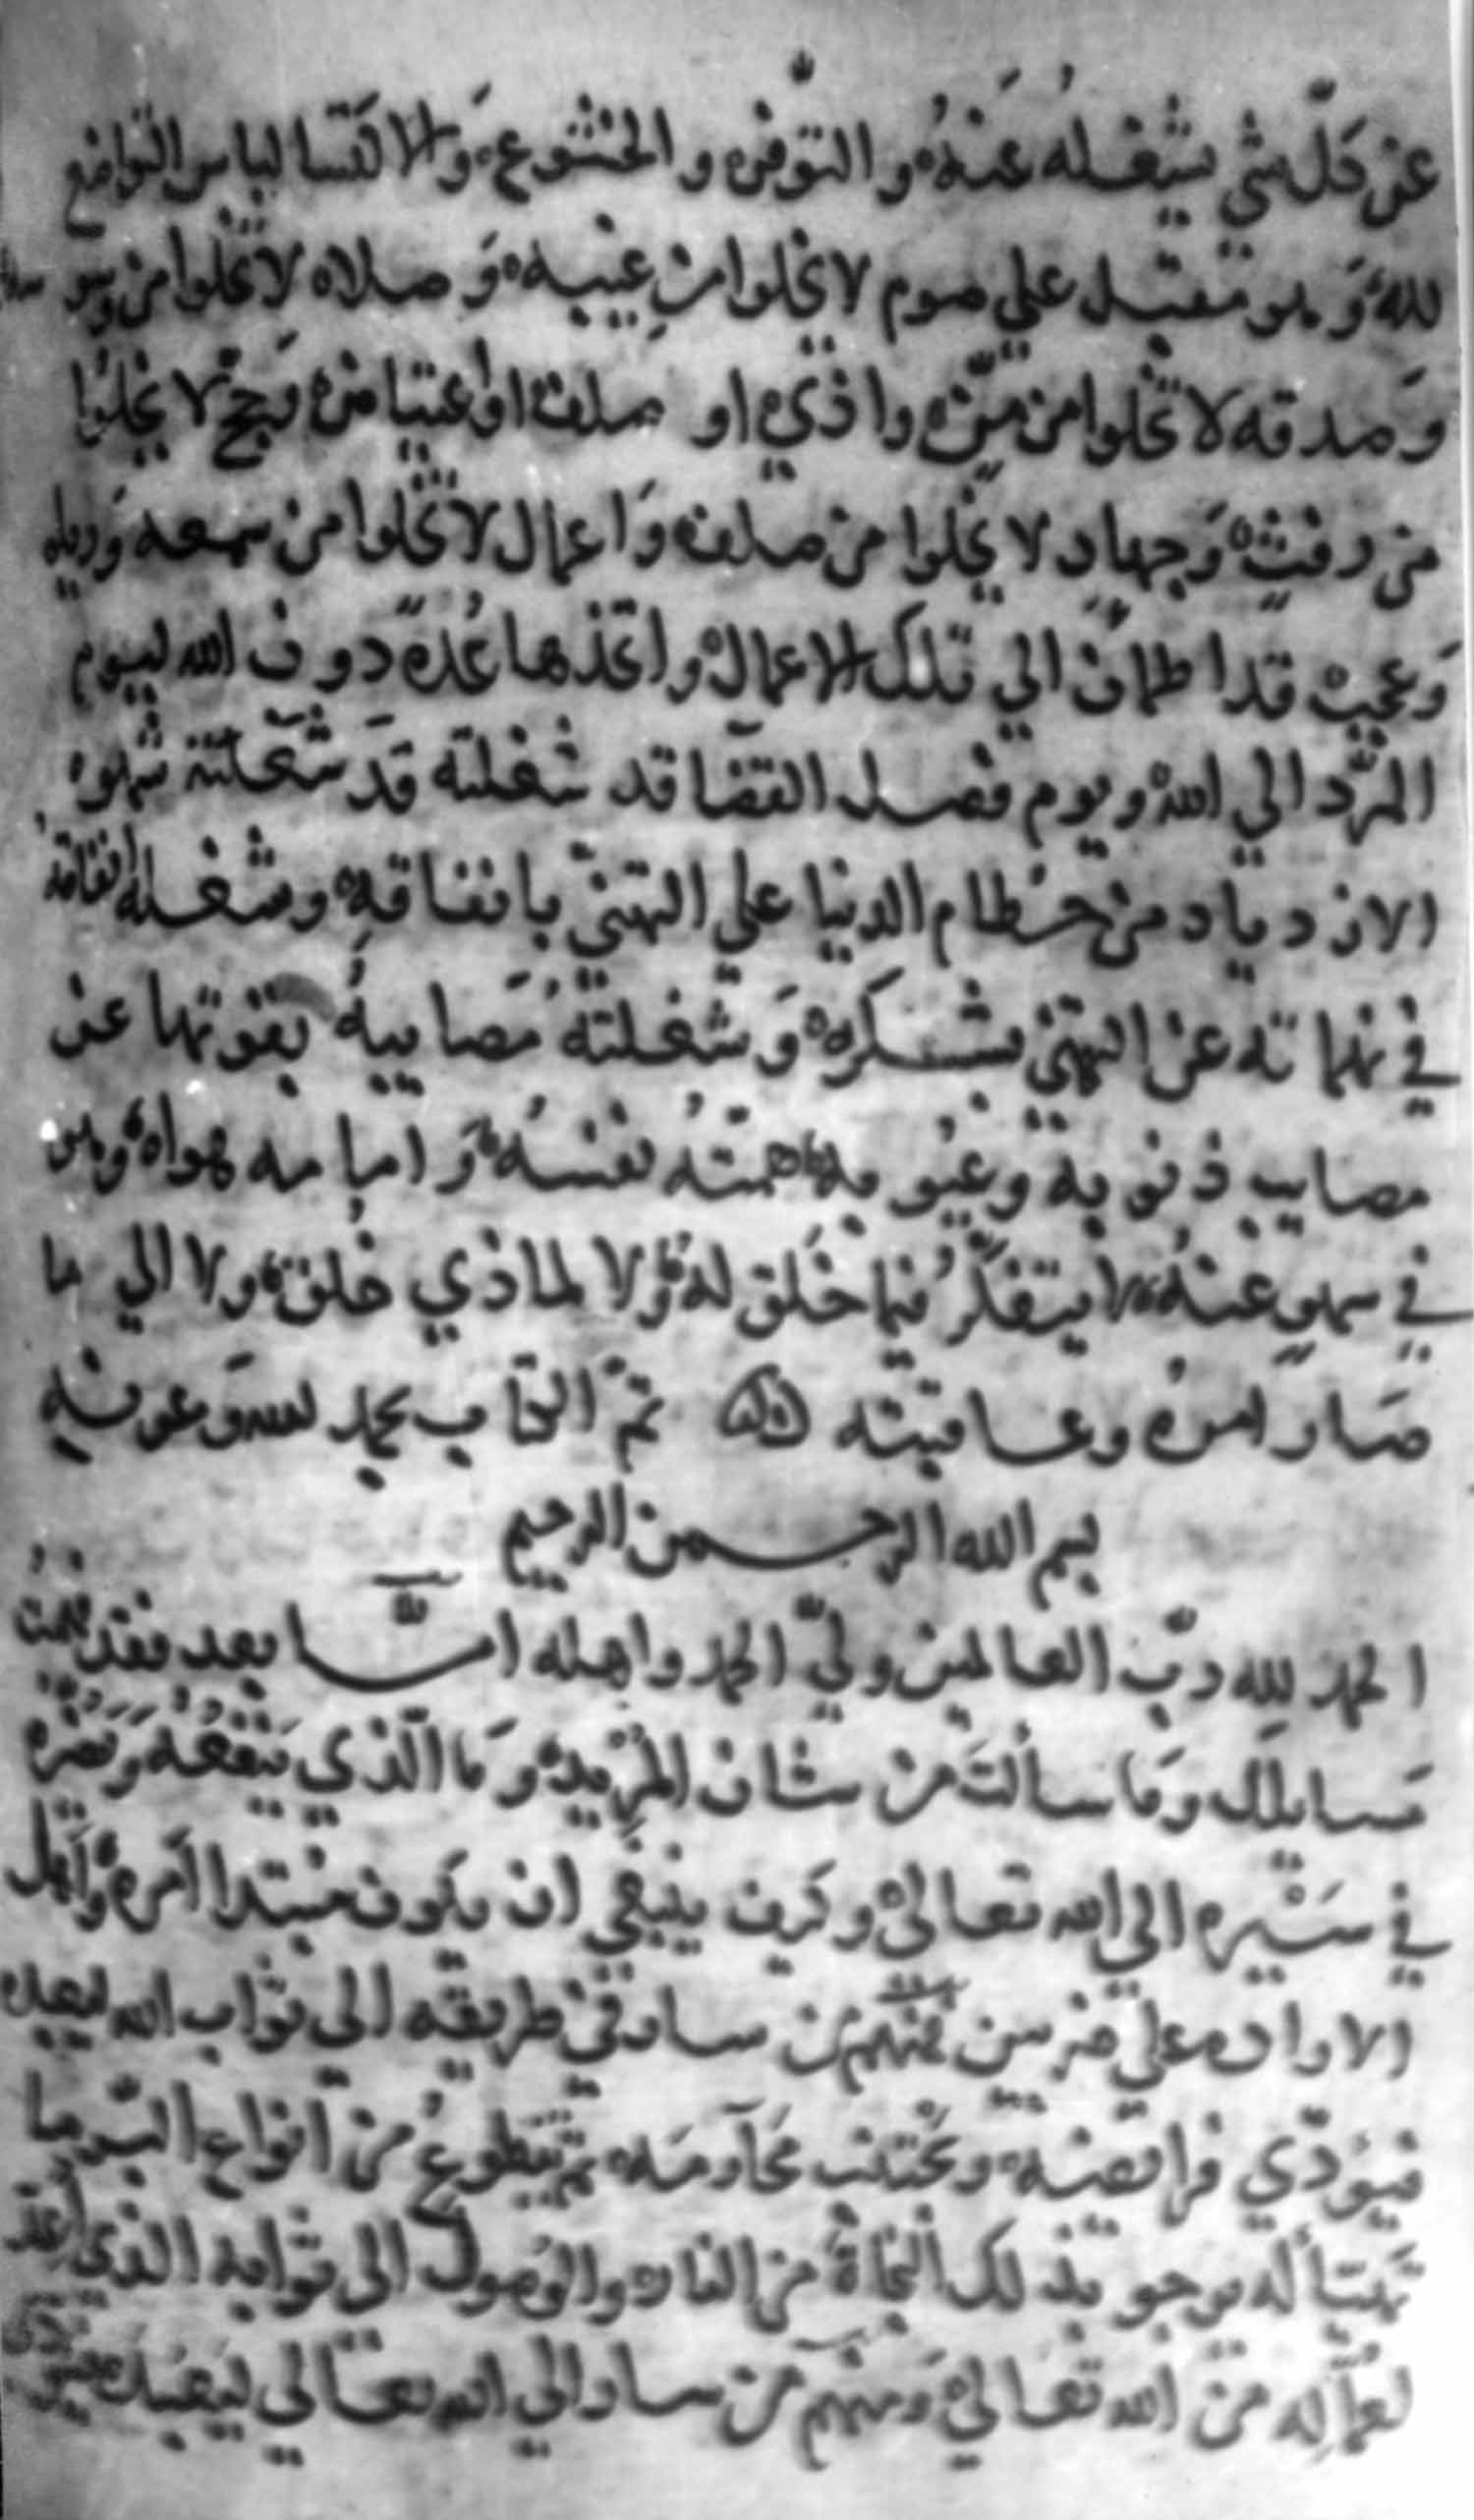 عن كلّ شي يشغله عنه والتوفّر والخشوع والاكتسا لباس التواضع
لله وهو مقبل علي صوم لا يخلوا من غيبه وصلاه لا تخلوا من سهو
وصدقه لا تخلوا من منّ واذي او صلف او اعتياض وحج لا يخلوا
من رفث وجهاد لا يخلوا من صلف واعمال لا تخلوا من سمعه ورياء
وعجب قد اطمان الي تلك الاعمال واتخذها عُدّه دون الله ليوم
المردّ الي الله ويوم فصل القضا قد شغلته قد شغلته شهوه
الازدياد من حطام الدنيا علي التهني بانفاقه وشغله انفاقه
في نهماته عن التهني بشكره وشغلته مصايبه بفوتها عن
مصايب ذنوبه وعيوبه همته نفسه وامامه هواه وهو
في سهو عنه لا يتفكّر فيما خلق له ولا لماذي خلق ولا الي ما
صار امره وعاقبته تمّ الكتاب بحمد لله وعونه
بسم الله الرحمن الرحيم
الحمد لله ربّ العالمين وليّ الحمد واهله امّا بعد فقد فهمت
مسايلك وما سالت من شان المريد وما الّذي ينفعه ويضره
في سيره الي الله تعالى وكيف ينبغي ان يكون مبتدا امره واهل
الاراده علي ضربين منهم من سار في طريقه الى ثواب الله ليعبده
فيؤدّي فرائضه ويجتنب محارمه ثم يتطوع من انواع البر ما
تهيّأ له يرجو بذلك النجاة من النار والوصول الى ثوابه الذي اعد
لعمّاله من الله تعالي ومنهم من سار الي الله تعالي ليعبده